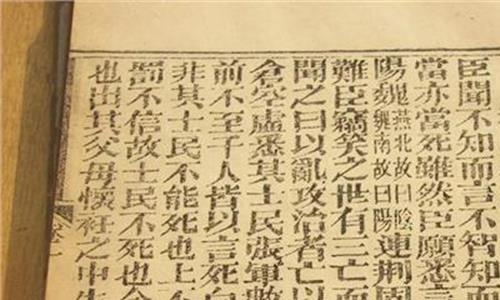 臣聞不知而言不智知而
當亦當死雖然臣願悉
陽魏燕北故曰陰魏南故曰陽連荊固
難臣竊笑之世有三亡而
聞之曰以亂攻治者亡以
倉空虛悉其士民張軍數
前不至千人皆以言死白
非其士民不能死也上不
罰不信故士民不死也今
也出其父母懷衽之中生